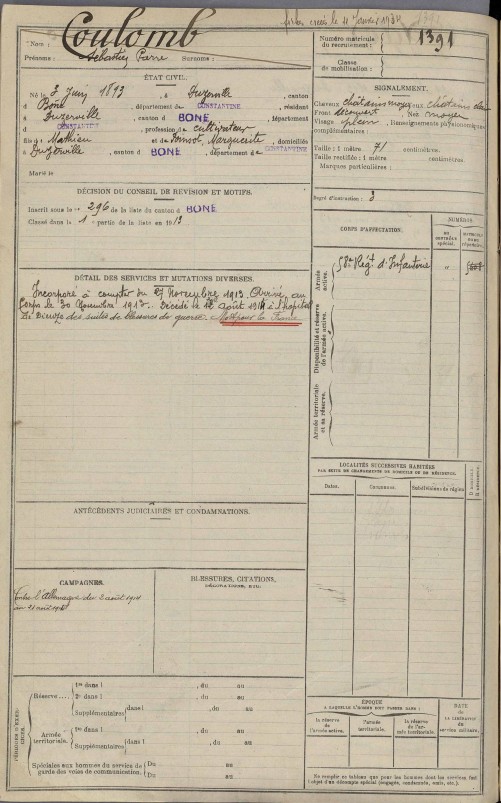 1391
Nom : Coulomb
Numéro matricule
du recrutement :
1391
Prénoms : Sébastien Pierre Surnoms :
Classe
de mobilisation :
ÉTAT CIVIL.
Né le 8 Juin 1893 , à Duzerville , canton
d Bône , département de CONSTANTINE , résidant
à Duzerville , canton d BONE , département
d CONSTANTINE , profession de Cultivateur
fils de Mathieu et de Marguerite , domiciliés
à Duzerville , canton d BONE , département de CONSTANTINE
Marié le
SIGNALEMENT.
Cheveux châtains moyen yeux châtains
Front découvert , Nez moyen
Visage plein , Renseignements physionomiques
complémentaires :
Taille : 1 mètre 71 centimètres.
Taille rectifiée : 1 mètre centimètres.
Marques particulières :
DÉCISION DU CONSEIL DE RÉVISION ET MOTIFS.
Inscrit sous le n° 296 de la liste du canton d BONE
Classé dans la 1 partie de la liste en 1913
Degré d'instruction : 3
CORPS D'AFFECTATION.
NUMÉROS
AU
CONTRÔLE
spécial.
MATRICULE
AU
RÉPERTOIRE.
Armée
active.
58e Régt d'Infanterie
Disponibilité et réserve
de l'armée active.
Armée territoriale
et sa réserve.
DÉTAIL DES SERVICES ET MUTATIONS DIVERSES.
Incorporé à compter du 27 Novembre 1913. Arrivé au
Corps le 30 Novembre 1913. Décédé le août 1914 à l'hôpital
de Dieuze des suites de blessures de guerre. Mort pour la France
LOCALITÉS SUCCESSIVES HABITÉES
PAR SUITE DE CHANGEMENTS DE DOMICILE OU DE RÉSIDENCE.
Dates.
Communes.
Subdivisions de région
D domicile.
R résidence.
ANTÉCÉDENTS JUDICIAIRES ET CONDAMNATIONS.
CAMPAGNES.
Contre l'Allemagne du 2 août 1914
au 21 août 1914
BLESSURES, CITATIONS,
DÉCORATIONS, ETC.
PÉRIODES D'EXERCICES.
Réserve....
1re dans l , du au
2e dans l , du au
Supplémentaires dans l , du au
Armée
territoriale.
1re dans l , du au
Supplémentaires dans l , du au
Spéciales aux hommes du service de
garde des voies de communication.
Du au
Du au
ÉPOQUE
À LAQUELLE L'HOMME DOIT PASSER DANS :
la réserve
de l'armée
active.
l'armée
territoriale.
la réserve
de l'armée
territoriale.
DATE
DE LA LIBÉRATION
du
service militaire.
Ne remplir ce tableau que pour les hommes dont les services font l'objet
d'un décompte spécial (engagés, condamnés, omis, etc.).